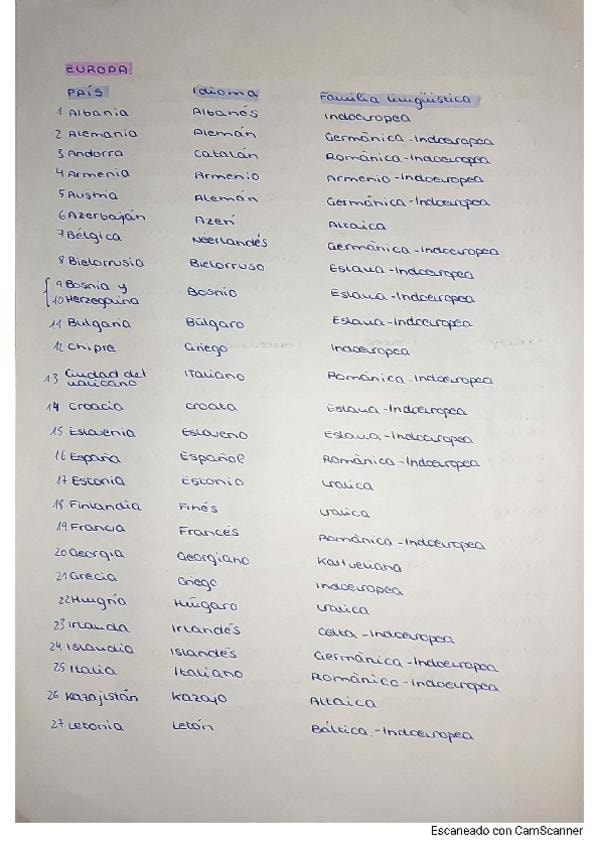 EUROPA
PAÍS Idioma Familia lingüística
1 Albania Albanés Indoeuropea
2 Alemania Alemán Germánica-Indoeuropea
3 Andorra Catalán Románica-Indoeuropea
4 Armenia Armenio Armenio-Indoeuropea
5 Austria Alemán Germánica-Indoeuropea
6 Azerbaján Azerí Altaica
7 Bélgica Neerlandés Germánica-Indoeuropea
8 Bielorrusia Bielorruso Eslava-Indoeuropea
9 Bosnia y
10 Herzegovina Bosnio Eslava-Indoeuropea
11 Bulgaria Búlgaro Eslava-Indoeuropea
12 Chipre Griego Indoeuropea
13 Ciudad del
vaticano Italiano Románica-Indoeuropea
14 Croacia Croata Eslava-Indoeuropea
15 Eslovenia Esloveno Eslava-Indoeuropea
16 España Español Románica-Indoeuropea
17 Estonia Estonio Uralica
18 Finlandia Finés Uralica
19 Francia Francés Románica-Indoeuropea
20 Georgia Georgiano Kartveliana
21 Grecia Griego Indoeuropea
22 Hungría Húgaro Uralica
23 Irlanda Irlandés Celta-Indoeuropea
24 Islandia Islandés Germánica-Indoeuropea
25 Italia Italiano Románica-Indoeuropea
26 Kazajistán Kazajo Altaica
27 Letonia Letón Báltica-Indoeuropea
Escaneado con CamScanner